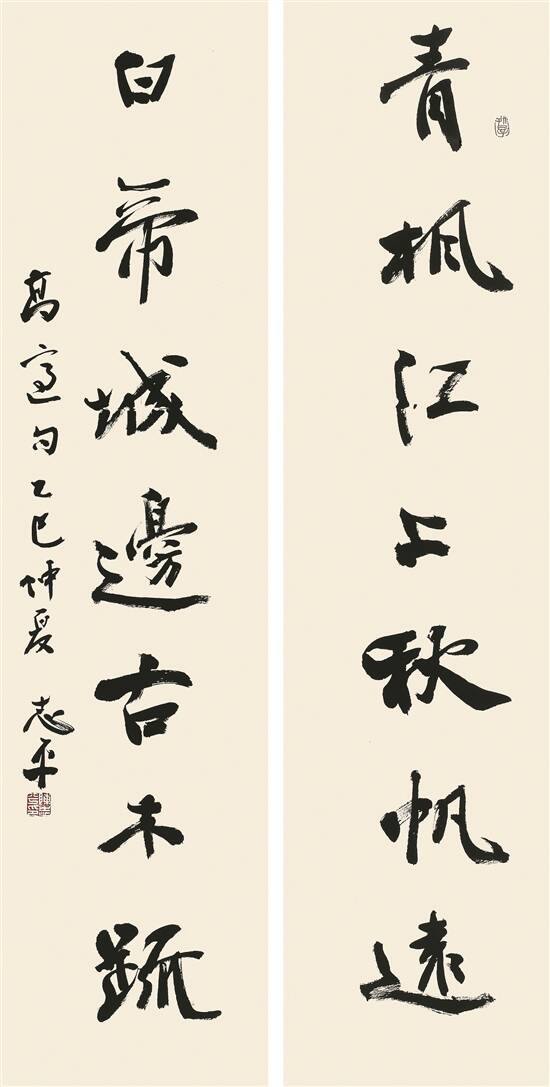 青楓江上秋帆遠
白帝城邊古木疏
高適句乙巳仲夏 志平